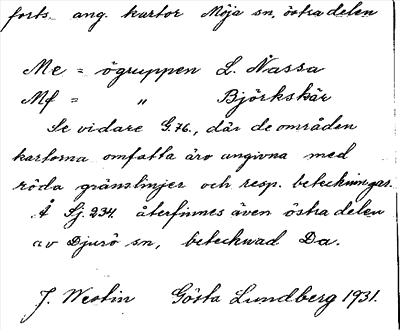 forts. ang. kartor Möja sn, östra delen
Me = ögruppen L. Nassa
Mf = " Björkskär
Se vidare G.76., där de områden
kartorna omfatta äro angivna med
röda gränslinjer och resp. beteckningar.
Å Sj. 234. återfinnes även östra delen
av Djurö sn, betecknad Da.
J. Westin Gösta Lundberg 1931.